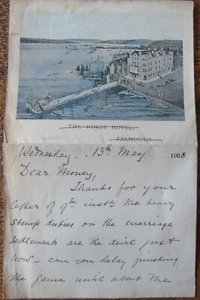 THE KING'S HOTEL,
FALMOUTH.
Wednesday. 13th May 1908
Dear Money,
Thanks for your
letter of 9th inst. The heavy
Stamp duties on the marriage
settlements are the devil just
now – can you delay finishing
the same until about the